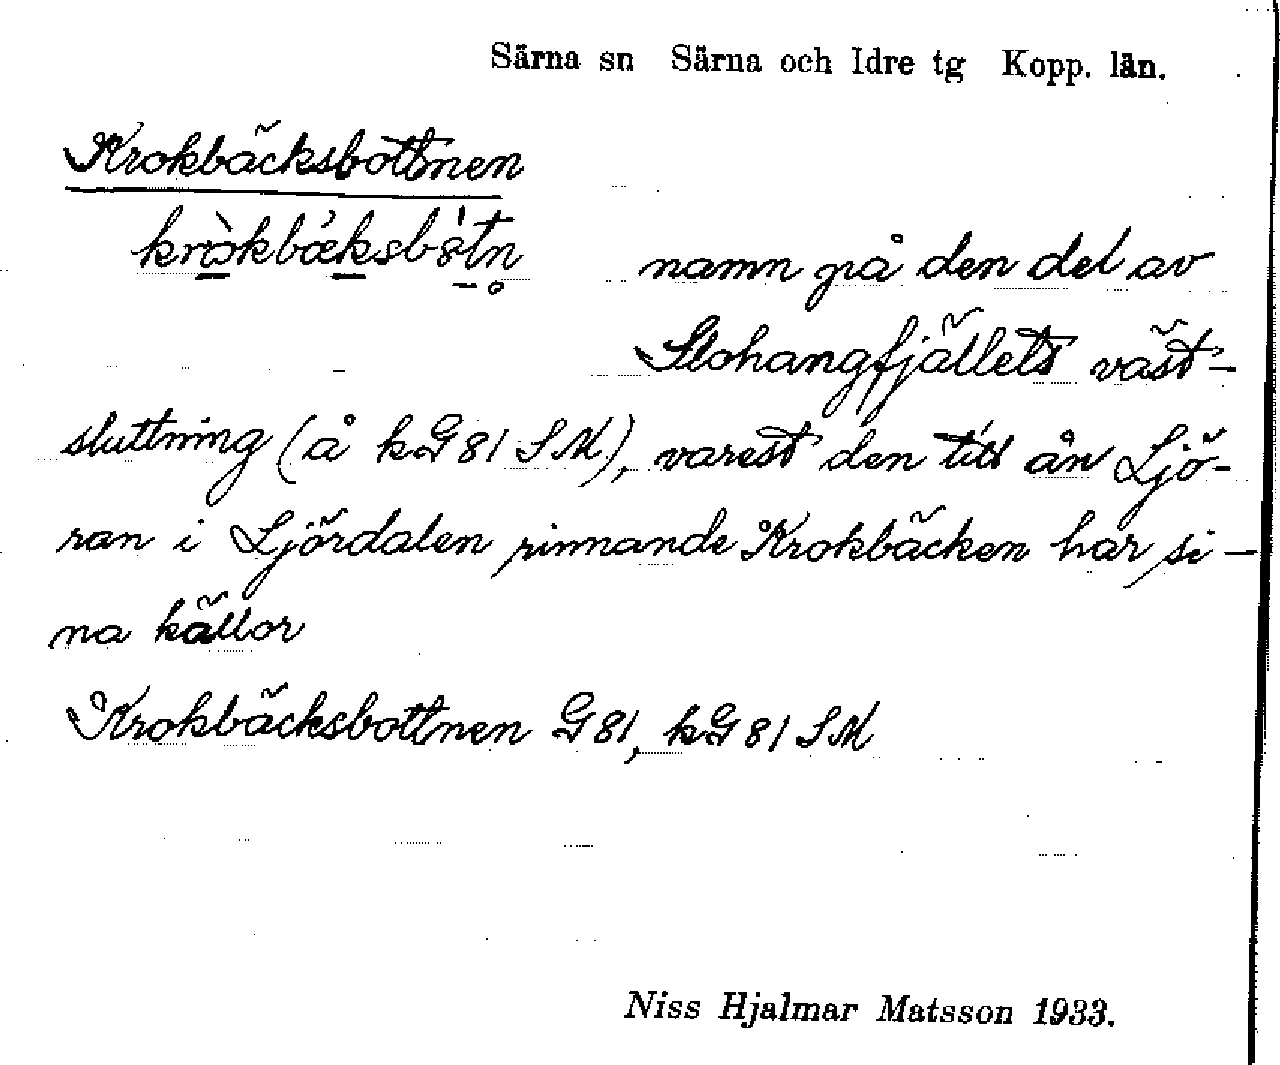 Särna sn Särna och Idre tg Kopp. län.
Krokbäcksbottnen
namn på den del av
Slohangfjällets väst-
sluttning (å kG 81 SM), varest den till ån Ljö-
ran i Ljördalen rinnande Krokbäcken har si-
na källor
Krokbäcksbottnen G 81, kG 81 SM
Niss Hjalmar Matsson 1933.